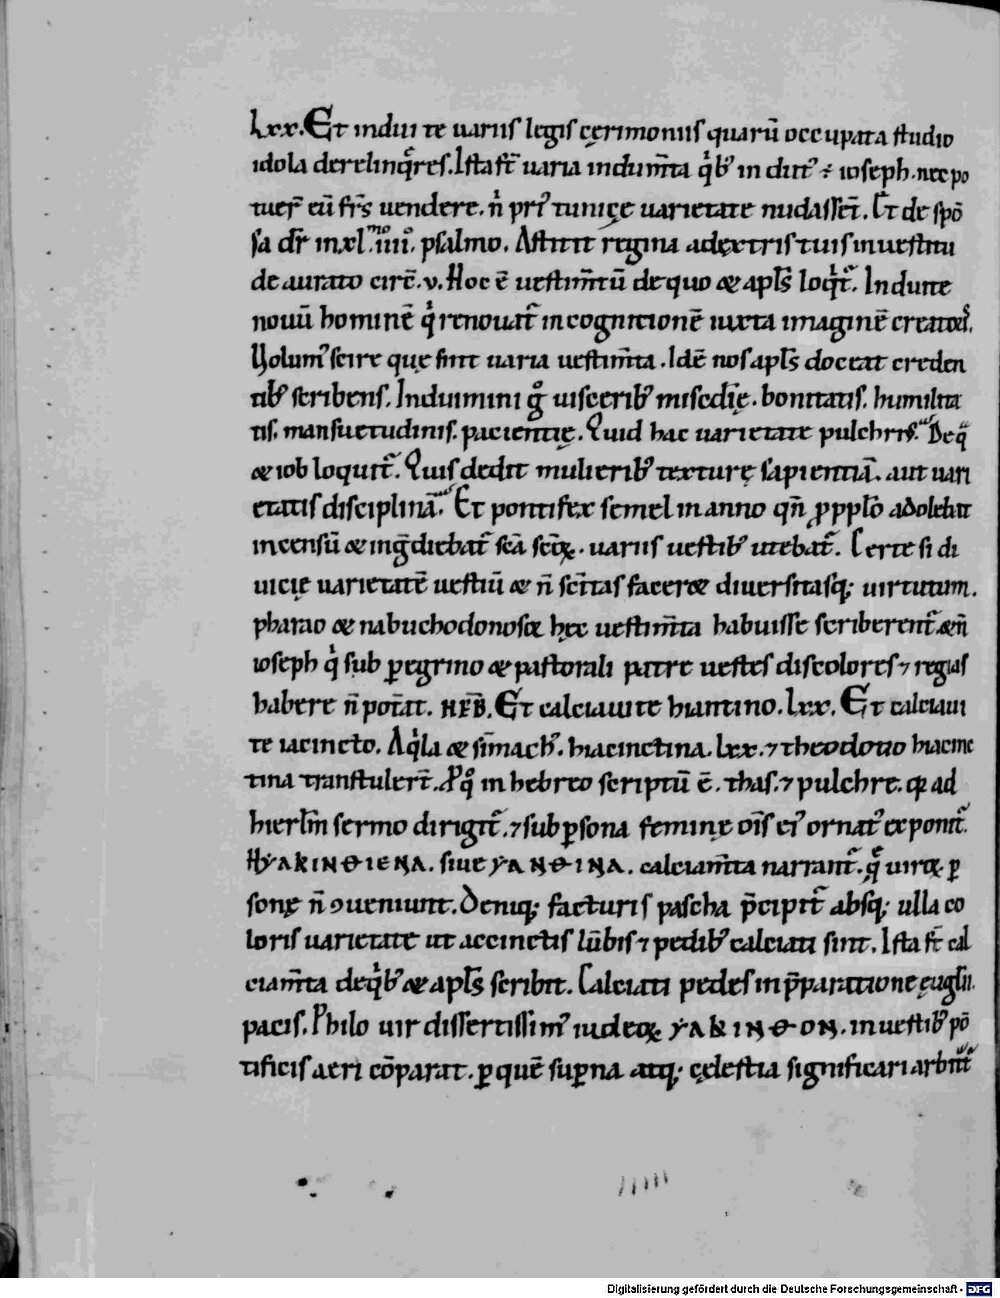 Lxx. Et indui te uariis legis cęrimoniis quarū occupata studio
idola derelinq̄res. Ista st̄ uaria indum̄ta qͥbꝫ indut᷒ ÷ ioseph. nec po
tuer̄ eū fr̄s uendere. n̄ pri᷒ tunicę uarietate nudassēt. Et de spō
sa dr̄ in xl.ͫͦ iiii. psalmo. Astitit regina adextris tuis inuestitu
de aurato circ̄. v. Hoc ē uestim̄tū de quo & apl̄s loqͥt᷒. Induite
nouū hominē qͥ renouat᷒ in cognitionē iuxta imaginē creatoris.
Volum᷒ scire quę sint uaria uestim̄ta. Idē nos apl̄s doceat creden
tibꝫ scribens. Induimini gͦ uisceribꝫ misc̄dię. bonitatis. humilita
tis. mansuetudinis. pacientię. Quid hac uarietate pulchri᷒. De qͣ
& iob loquit᷒. Quis dedit mulieribꝫ texturę sapientiā. aut uari
etatis disciplinā. Et pontifex semel in anno qn̄ ꝓ pplo adolebat
incensū & ingͣdiebat᷒ sc̄a sc̄oꝝ. uariis uestibꝫ utebat᷒. Certe si di
uicię uarietatē uestiū & n̄ sc̄itas facer& diuersitasqꝫ uirtutum.
pharao & nabuchodonosor hęc uestim̄ta habuisse scriberent᷒. & n̄
ioseph qͥ sub ꝑegrino & pastorali patre uestes discolores ⁊ regias
habere n̄ pot̄at. HEB̄. Et calciaui te hiantino. Lxx. Et calciaui
te iacincto. Aqͥla & sim̄achꝫ. hiacinctina. Lxx. ⁊ theodotio hiacinc
tina transtulert̄. Pͦ qͦ in hebreo scriptū ē. thas. ⁊ pulchre. qꝫ ad
hierl̄m sermo dirigit᷒. ⁊ sub ꝑsona feminę oīs ei᷒ ornat᷒ exponit᷒.
ΗΥΑΚΙΝΘΙΕΝΑ. siue ΥΑΝΘΙΝΑ. calciam̄ta narrant᷒. q̄ uiroꝝ ꝑ
sonę n̄ ꝯueniunt. Deniqꝫ facturis pascha p̄cipit᷒ absqꝫ ulla co
loris uarietate ut accinctis lūbis ⁊ pedibꝫ calciati sint. Ista st̄ cal
ciam̄ta de qͥbꝫ & apl̄s scribit. Calciati pedes in p̄paratione ęuglīi
pacis. Philo uir dissertissim᷒ iudeoꝝ ΥΑΚΙΝΘΟΝ. in uestibꝫ pō
tificis aeri cōparat. ꝑ quē suꝑna atqꝫ cęlestia significari arbitt᷒